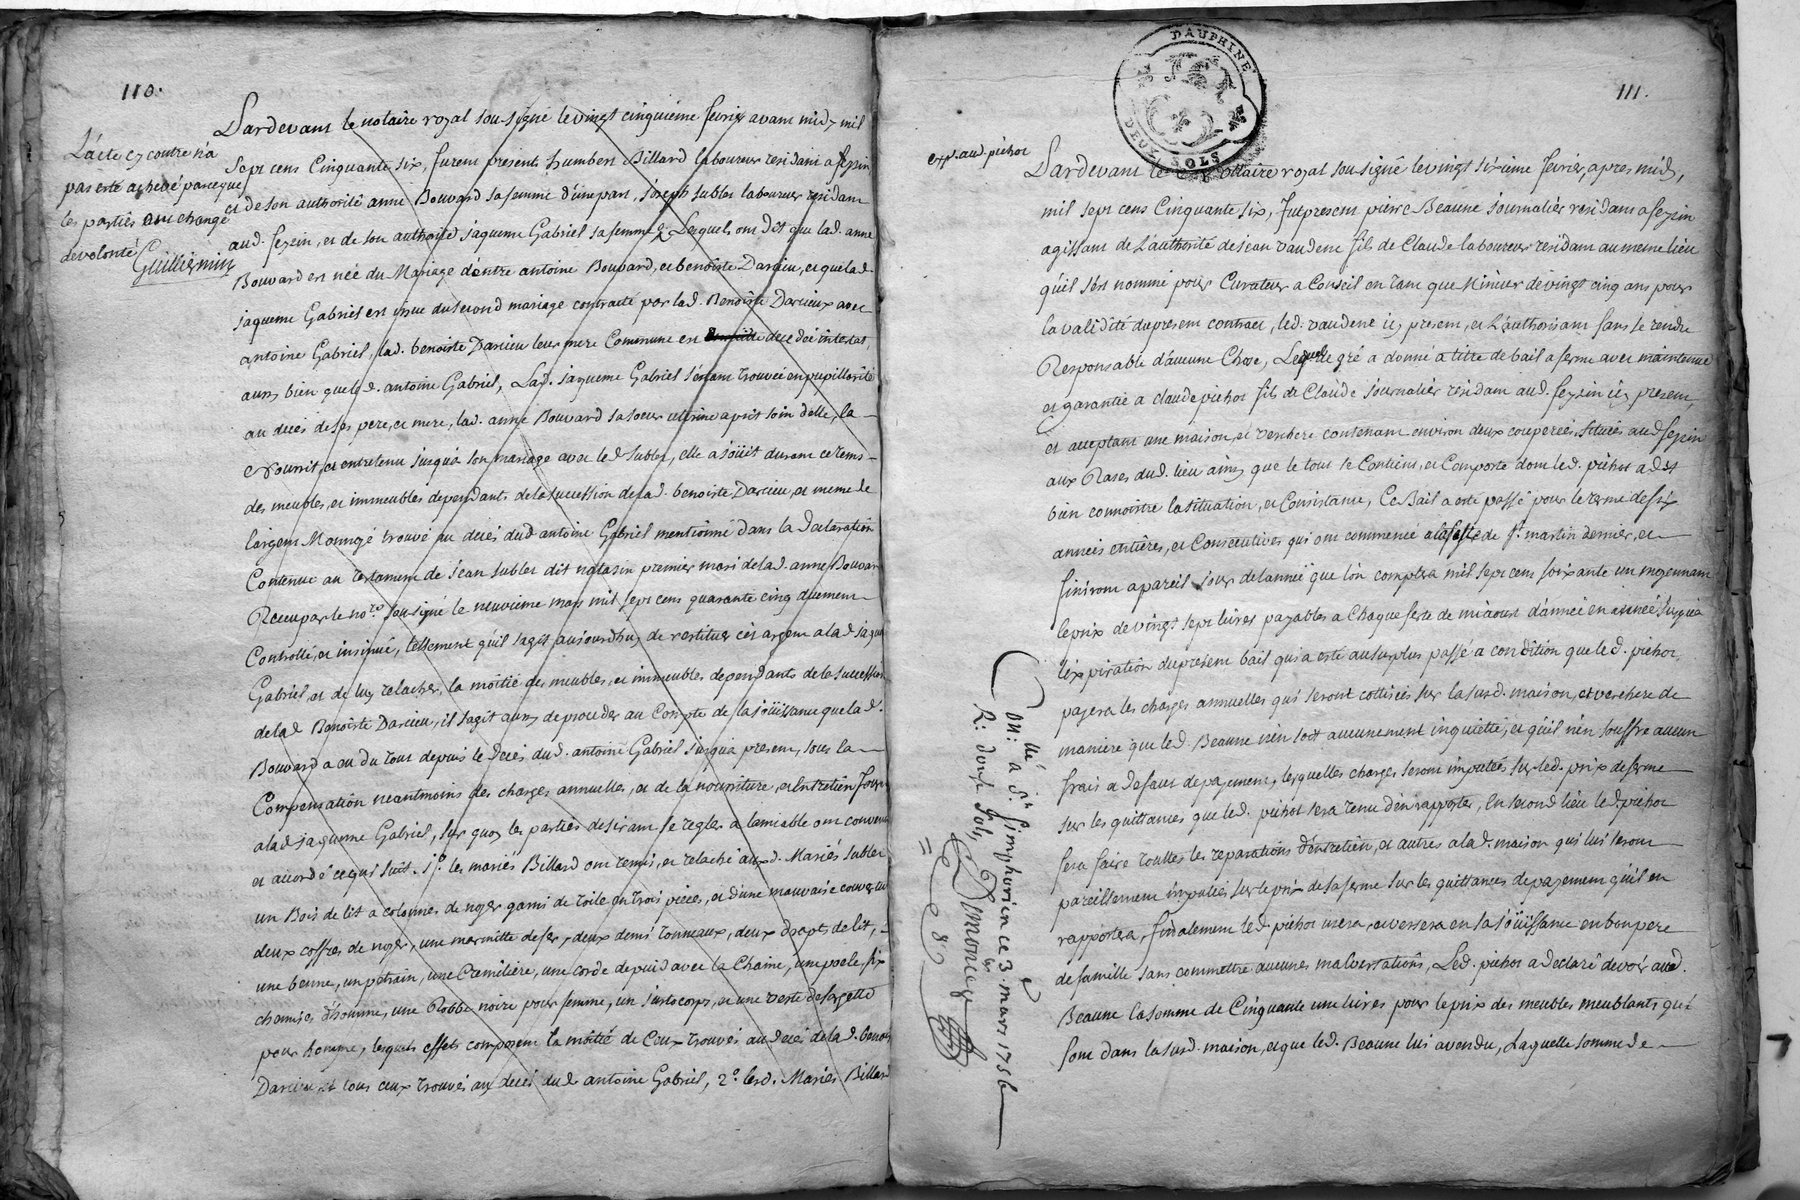 110.
L'acte cy contre n'a
pas esté achevé parceque
les parties ont changé
de volonté
Guillermin
Pardevant le notaire royal sousigné le vingt cinquiéme fevrier avant midy mil
sept cens Cinquante six, furent presents humbert Billard laboureur residant a feysin
et de son authorité anne Bouvard sa femme d'une part, joseph sublet laboureur residant
aud. feysin, et de son authorité jaqueme Gabriel sa femme Lesquels ont dit que lad. anne
Bouvard est née du Mariage d'entre antoine Bouvard, et benoiste Darcieu, et que lad.
jaqueme Gabriel est issue du second mariage contracté par lad. Benoiste Darcieux avec
antoine Gabriel, lad. benoiste Darcieu leur mere Commune est decedée intestat
aussy bien que led. antoine Gabriel, Lad. jaqueme Gabriel s'etant trouvée en pupillarité
au decés de ses pere, et mere, lad. anne Bouvard sa soeur uterine a pris soin d'elle, la
Nourrit, et entretenu jusqu'a son mariage avec led sublet, elle a joüit durant ce tems
des meubles, et immeubles dependants de la succession de lad. benoiste Darcieu, et meme de
l'argent Monnoyé trouvé au decés dud antoine Gabriel mentionné dans la declaration
Contenue au testament de jean sublet dit premier mari de lad. anne Bouvard
Receu par le no.re sousigné le neuvieme mars mil sept cens quarante cinq duement
Controllé, et insinué, tellement qu'il s'agit aujourdhuy de restituer cet argent a lad jaqueme
Gabriel, et de luy relacher la moitié des meubles, et immeubles dependants de la succession
de lad Benoiste Darcieu, il s'agit aussy de proceder au Compte de la joüissance que lad.
Bouvard a eu du tout depuis le decés dud. antoine Gabriel jusqu'a present, sous la
Compensation neantmoins des charges annuelles, et de la nourriture, et Entretien fourni
a lad jaqueme Gabriel, sur quoy les parties desirant se regler a l'amiable ont convenu
et accordé ce qui suit. 1.° les mariés Billard ont remis, et relaché auxd. Mariés sublet
un Bois de lit a colonnes de noyer garni de toile en trois pieces, et d'une mauvaise couverte
deux coffres de noyer, une marmitte de fer, deux demi tonneaux, deux draps de lit,
une benne, un petrain, une Cremilière, une corde de puid avec la Chaine, une poele six
chemises d'homme, une Robbe noire pour femme, un justecorps, et une veste de sargette
pour homme, lesquels effets composent la moitié de Ceux trouvés au decés de lad. benoiste
Darcieu et tous ceux trouvés au decés dud antoine Gabriel, 2.° lesd. Mariés Billard
DAUPHINÉ
DEUX SOLS
111.
exp. aud pichot
Pardevant le notaire royal sousigné le vingt sixieme fevrier, apres midy,
mil sept cens Cinquante six, fut present pierre Beaune journalier residant a feysin
agissant de L'authorité de jean vaudene fils de Claude laboureur residant au meme lieu
qu'il s'est nommé pour Curateur a Conseil en tant que Mineur de vingt cinq ans pour
la validité du present contract, led. vaudene icy present, et L'authorisant sans se rendre
Responsable d'aucune Chose, Lequel de gré a donné a titre de bail a ferme avec maintenue
et garantie a claude pichot fils de Claude journalier residant aud. feysin icy present,
et acceptant une maison, et verchere contenant environ deux couperées, situées aud feysin
aux Rases dud. lieu ainsy que le tout se Contient, et Comporte dont led. pichot a dit
bien connoitre la situation, et Consistance, Ce Bail a esté passé pour le terme de six
années entières, et Consecutives qui ont commencé a la feste de S.t martin dernier, et
finiront a pareil jour de l'année que l'on comptera mil sept cens soixante un moyennant
le prix de vingt sept livres payables a Chaque feste de miaoust d'année en année jusqu'a
l'expiration du present bail qui a esté au surplus passé a condition que led. pichot
payera les charges annuelles qui seront cottisées sur la susd. maison, et verchere de
maniere que led. Beaune n'en soit aucunement inquietté, et qu'il n'en souffre aucun
frais a defaut de payement, lesquelles charges seront imputées sur led. prix de ferme
sur les quittances que led. pichot sera tenu d'en rapporter, En second lieu led. pichot
fera faire touttes les reparations d'entretien, et autres a lad. maison qui lui seront
pareillement imputées sur le prix de sa ferme sur les quittances de payement qu'il en
rapportera, finalement led. pichot usera, et versera en la joüissance en bon pere
de famille sans commettre aucunes malversations, Led. pichot a declaré devoir aud.
Beaune la somme de Cinquante une livres pour le prix des meubles meublants qui
sont dans la susd. maison, et que led. Beaune lui a vendu, Laquelle somme de
Con.llé a S.t simphorien ce 3.e mars 1756
R: douze sols